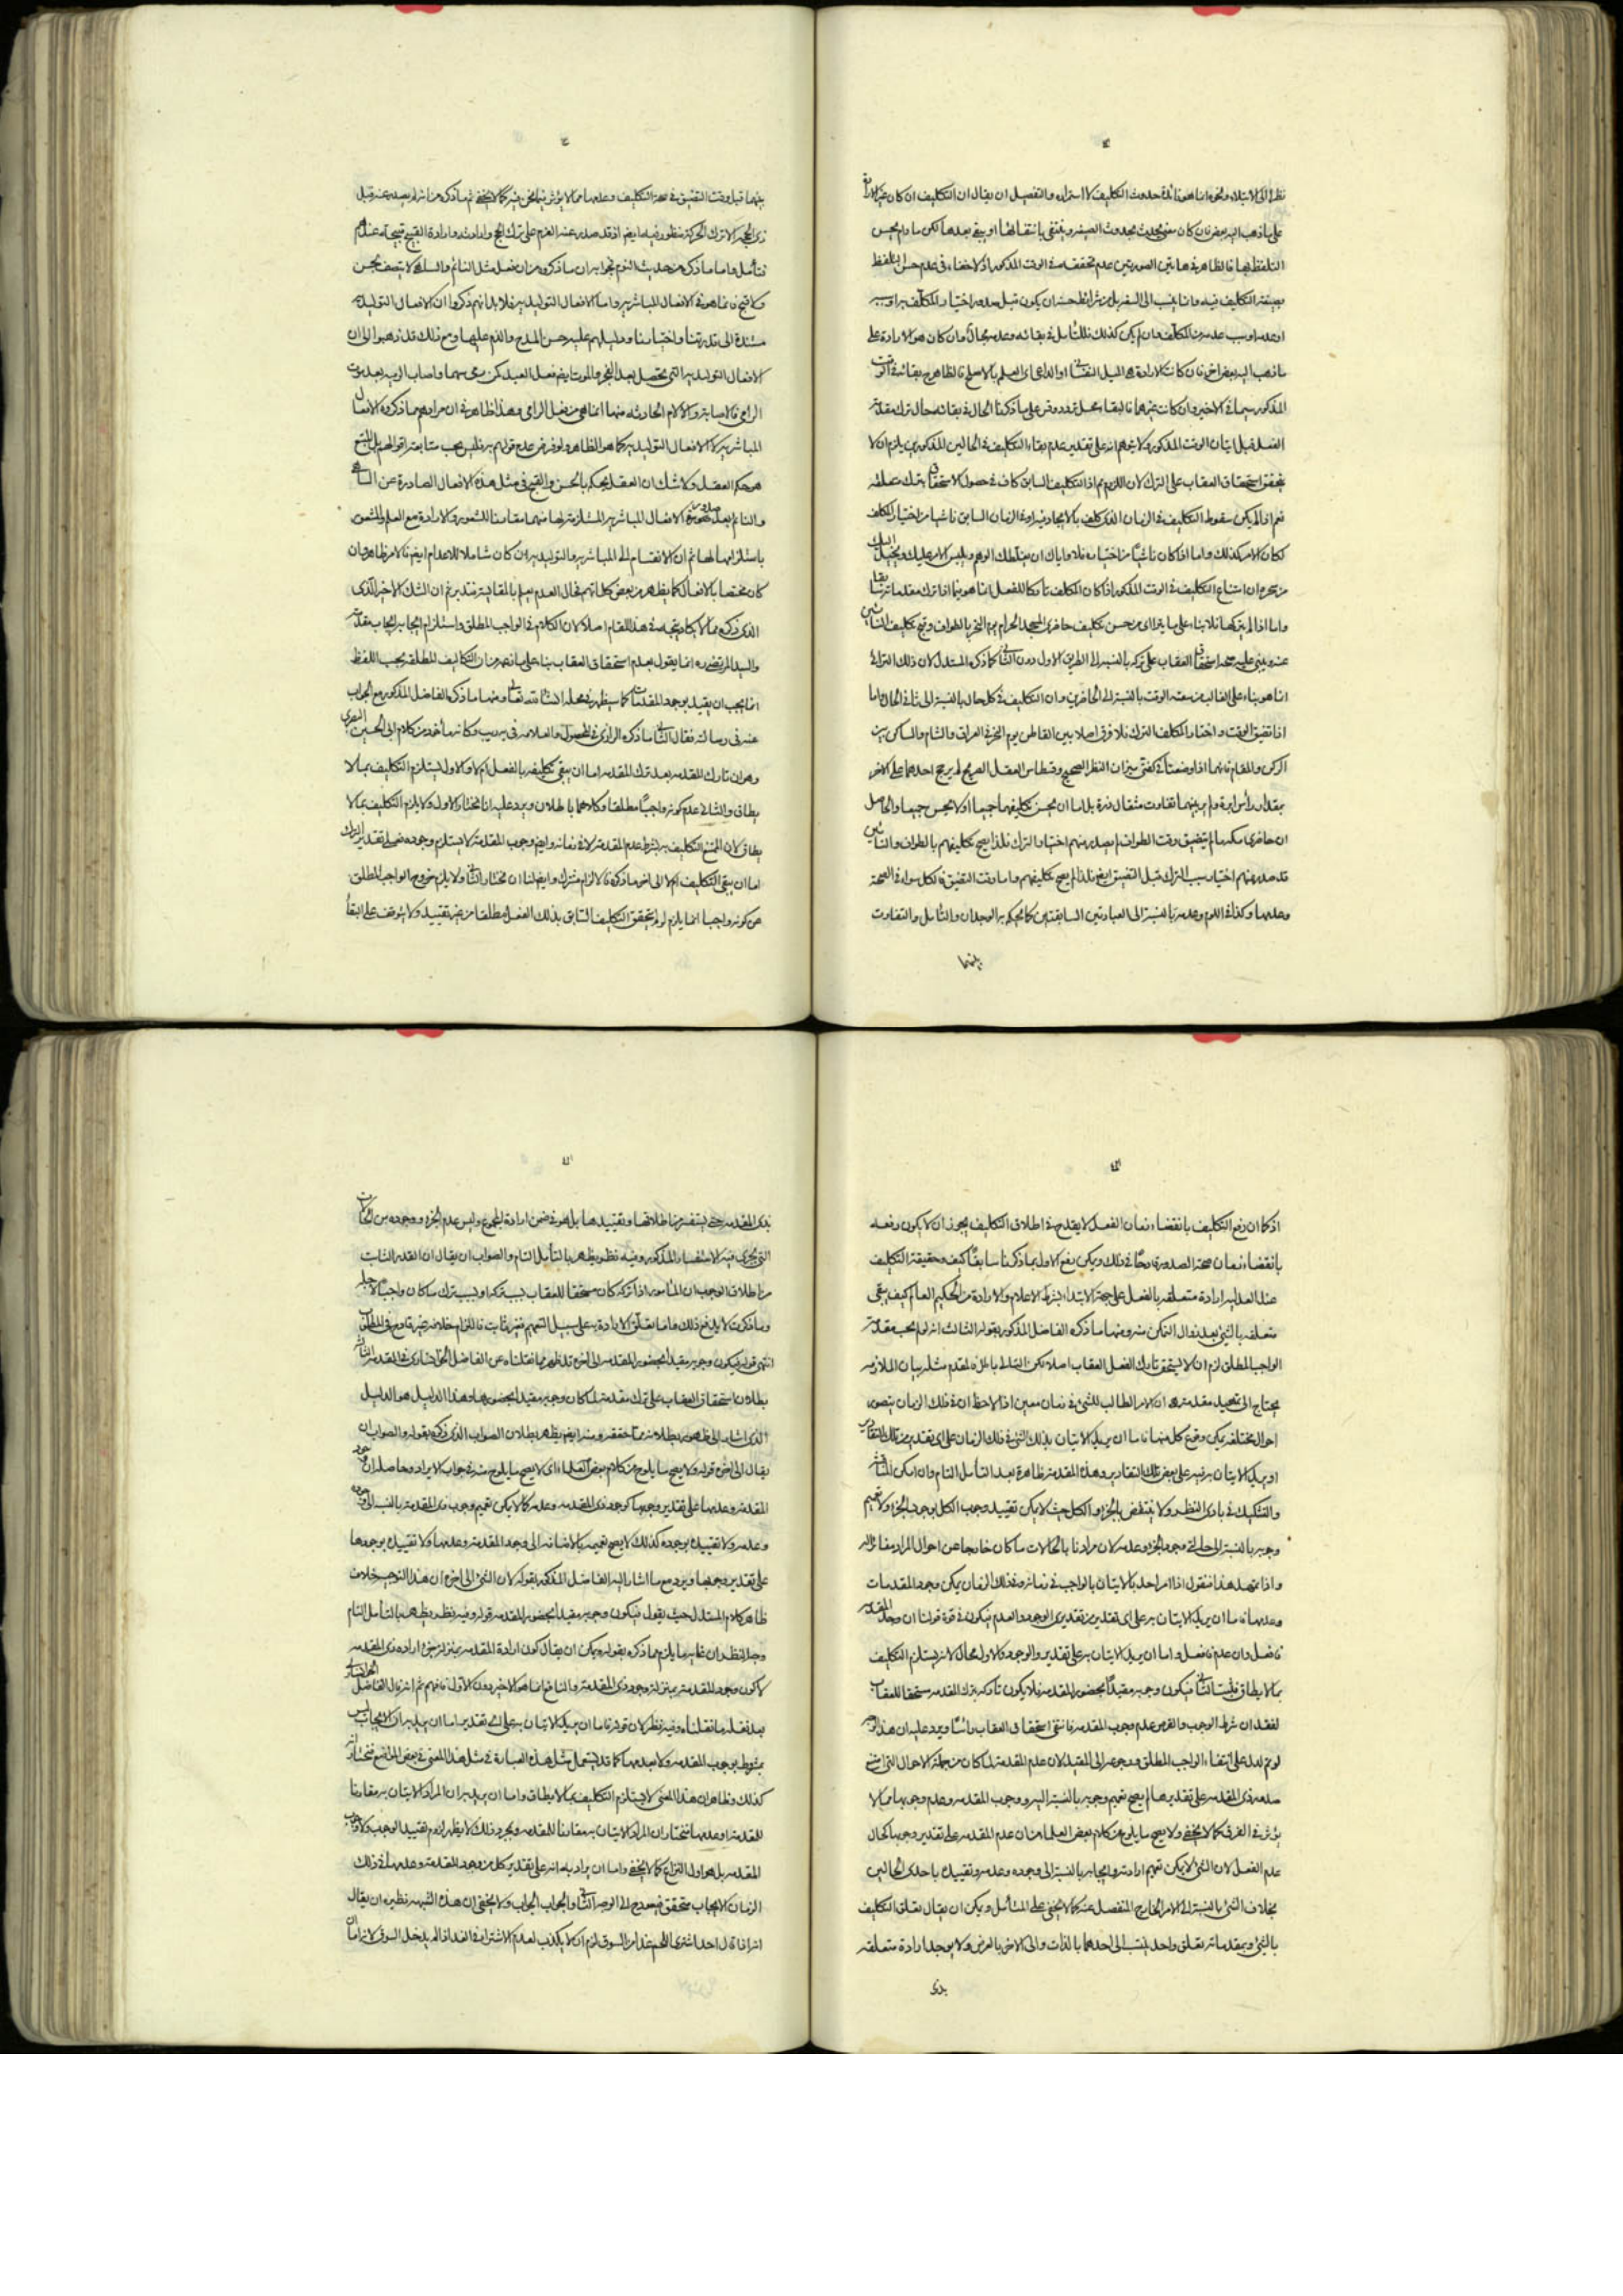 نظرا الى الابتلاء ونحوه انما هو فائدة حدوث التكليف لا استمراره والتفصيل ان يقال ان التكليف ان كان غير الارادة
على ما ذهب اليه بعض فان كان معنى يحدث بحدوث الصيغة وينتفى بانتفائها او يبقى بعدها لكن ما دام يحسن
التلفظ بها فالظاهر في هاتين الصورتين عدم تحققه في الوقت المذكور اذ لا خفاء في عدم حسن التلفظ
بصيغة التكليف فيه
او عدمه او سبب عدمه من المكلف وان لم يكن كذلك فللتأمل في بقائه وعدمه مجال وان كان هو الارادة على
ما ذهب اليه بعض اخر فان كانت الارادة هي الميل النفسانى او الداعى اى العلم بالاصلح فالظاهر بقائه في الوقت
المذكور سيما في الاخير وان كانت غيرهما فالبقاء محل تردد وقس على ما ذكرنا الحال في بقائه حال ترك مقدمة
الفعل قبل اتيان الوقت المذكور ولا يتوهم انه على تقدير عدم بقاء التكليف في الحالين المذكورين يلزم ان لا
يتحقق استحقاق العقاب على الترك لان اللزوم اذ التكليف السابق كاف في حصول الاستحقاق بترك متعلقه
نعم اذا لم يكن سقوط التكليف في الزمان الذى كلف بالايجاد فيه او في الزمان السابق ناشيا من اختيار المكلف
لكان الامر كذلك واما اذا كان ناشيا من اختياره فلا واياك ان يغلطك الوهم ويلبس الامر عليك ويخيل اليك
من نحو ان امتناع التكليف في الوقت المذكور اذا كان المكلف تاركا للفعل انما هو فيما اذا ترك مقدماته سابقا
واما اذا لم يتركها فلا بناء على ما يترا اى من حسن تكليف حاضرى المسجد الحرام يوم النحر بالطواف وقبح تكليف النائين
عنه ويبنى عليه صحة استحقاق العقاب على تركه بالنسبة الى الطريق الاول دون الثانى كما ذكره المستدل لان ذلك الترائى
انما هو بناء على الغالب من سعة الوقت بالنسبة الى الحاضرين وان التكليف في كل حال بالنسبة الى ثانى الحال واما
اذا تضيق الوقت واختار المكلف الترك فلا فرق اصلا بين القاطن يوم النحر في العراق والشام والساكن بين
الركن والمقام فانهما اذا وضعتا في كفتى ميزان النظر الصحيح وقسطاس العقل الصريح لم يرجح احدهما على الاخر
بمقدار رأس ابرة ولم ير بينهما تفاوت مثقال ذرة بل اما ان يحسن تكليفهما جميعا او لا يحسن جميعا والحاصل
ان حاضرى مكة ما لم يتضيق وقت الطواف لم يصدر منهم اختيار الترك فلذا يصح تكليفهم بالطواف والنائين
قد صدر منهم اختيار سبب الترك قبل التضيق ايضا فلذا لم يصح تكليفهم واما وقت التضيق فالكل سواء في الصحة
وعدمها وكذا في اللوم وعدمه بالنسبة الى العبادتين السابقتين كما يحكم به الوجدان والتأمل والتفاوت
بينهما
بينهما قبل وقت التضيق في صحة التكليف وعدمها مما لا يؤثر فيما نحن فيه كما لا يخفى ثم ما ذكره من انه لم يصدر عنه قبل
ذى الحجة الا ترك الحركة منظور فيه ايضا اذ قد صدر عنه العزم على ترك الحج وارادته وارادة القبيح قبيحة عندهم
فتأمل واما ما ذكره من حديث النوم فجوابه ان ما ذكروه من ان فعل مثل النائم والساهى لا يتصف بحسن
ولا قبح فانما هو في الافعال المباشرية واما الافعال التوليدية فلا بل انهم ذكروا ان الافعال التوليدية
مستندة الى قدرتنا واختيارنا ودليلهم عليه حسن المدح والذم عليها ومع ذلك قد ذهبوا الى ان
الافعال التوليدية التى تحصل بعد العجز والموت ايضا فعل العبد كمن رمى سهما واصاب الرمية بعد موت
الرامى فالاصابة والالام الحادثة منها انما هى من فعل الرامى وهذا ظاهر في ان مرادهم مما ذكروه الافعال
المباشرية لا الافعال التوليدية كما هو الظاهر ولو فرض عدم قولهم به فليس يجب متابعة اقوالهم بل المتبع
هو حكم العقل ولا شك ان العقل يحكم بالحسن والقبح في مثل هذه الافعال الصادرة عن الساهى
والنائم بعد صدور الافعال المباشرية المستلزمة لها منهما مقارنا للشعور والارادة مع العلم والشعور
باستلزامها لها ثم ان الانقسام الى المباشرية والتوليدية ان كان شاملا للاعدام ايضا فالامر ظاهر وان
كان مختصا بالافعال كما يظهر من بعض كلماتهم فحال العدم يعلم بالمقايسة فتدبر ثم ان الشك الاخير الذى
الذى ذكره مما لا يكاد يتجه في هذا المقام اصلا لان الكلام في الواجب المطلق واستلزام ايجابه ايجاب مقدمته
والسيد المرتضى ره انما يقول بعدم استحقاق العقاب بناء على ما نصه من ان التكاليف المطلقة بحسب اللفظ
انما يجب ان يقيد بوجود المقدمات كما سيظهر في محله انشاء الله تعالى ومنها ما ذكره الفاضل المذكور مع الجواب
عنه في رسالته فقال الثانى ما ذكره الرازى في المحصول والعلامة في تهذيب وكانه مأخوذ من كلام ابى الحسين البصرى
وهو ان تارك المقدمة بعد ترك المقدمة اما ان يبقى تكليفه بالفعل ام لا والاول يستلزم التكليف بما لا
يطاق والثانى عدم كونه واجبا مطلقا وكلاهما باطلان ويرد عليه انا نختار الاول ولا يلزم التكليف بما لا
يطاق لان الممتنع التكليف به بشرط عدم المقدمة لا في زمانه وايضا وجوب المقدمة لا يستلزم وجوده فعلى تقدير الترك
اما ان يبقى التكليف ام لا الى اخر ما ذكره فالالزام مشترك وايضا لنا ان نختار الثانى ولا يلزم خروج الواجب المطلق
عن كونه واجبا انما يلزم لو لم يتحقق التكليف السابق بذلك الفعل مطلقا من غير تقييد ولا يتوقف على البقاء
اذ كما ان رفع التكليف بانقضاء زمان الفعل لا يقدح في اطلاق التكليف يجوز ان لا يكون رفعه
بانقضاء زمان صحة الصدور قادحا في ذلك ويمكن دفع الاول بما ذكرنا سابقا كيف وحقيقة التكليف
عند العدلية ارادة متعلقة بالفعل على جهة الابتداء بشرط الاعلام والارادة من الحكيم العالم كيف يبقى
متعلقة بالشئ بعد زوال التمكن منه ومنها ما ذكره الفاضل المذكور بقوله الثالث انه لو لم يجب مقدمة
الواجب المطلق لزم ان لا يستحق تارك الفعل العقاب اصلا لكن التالى باطل فالمقدم مثله بيان الملازمة
يحتاج الى تمهيد مقدمة هى ان الامر الطالب للشئ في زمان معين اذا لاحظ ان في ذلك الزمان يتصور
احوال مختلفة يمكن وقوع كل منها فاما ان يريد الاتيان بذلك الشئ في ذلك الزمان على اى تقدير من تلك التقادير
او يريد الاتيان به فيه على بعض تلك التقادير وهذه المقدمة ظاهرة بعد التأمل التام وان امكن المناقشة
والتشكيك في بادى النظر ولا ينتقض بالجزء والكل حيث لا يمكن تقييد وجوب الكل بوجود الجزء ولا تعميم
وجوبه بالنسبة الى حالتى وجود الجزء وعدمه لان مرادنا بالحالات ما كان خارجا عن احوال المراد مغايرا له
واذا تمهد هذا فنقول اذا امر احد بالاتيان بالواجب في زمانه وفى ذلك الزمان يمكن وجود المقدمات
وعدمها فاما ان يريد الاتيان به على اى تقدير من تقديرى الوجود والعدم فيكون في قوة قولنا ان وجد المقدمة
فافعل وان عدم فافعل واما ان يريد الاتيان به على تقدير الوجود والاول محال لانه يستلزم التكليف
بما لا يطاق فثبت الثانى فيكون وجوبه مقيدا بحضور المقدمة فلا يكون تاركه بترك المقدمة مستحقا للعقاب
لفقدان شرط الوجوب والفرض عدم وجوب المقدمة فانتفى استحقاق العقاب رأسا ويرد عليه ان هذا الدليل
لو تم لدل على انتفاء الواجب المطلق ورجوعه الى المقيد لان عدم المقدمة لما كان من جملة الاحوال التى امتنع
صدور ذى المقدمة على تقديرها لم يصح تعميم وجوبه بالنسبة اليه ووجوب المقدمة وعدم وجوبها مما لا
يؤثر في الفرق كما لا يخفى ولا يصح ما يلوح من كلام بعض العلماء من ان عدم المقدمة على تقدير وجوبها كحال
عدم الفعل لان الشئ لا يمكن تعميم ارادته وايجابه بالنسبة الى وجوده وعدمه وتقييده باحدى الحالين
بخلاف الشئ بالنسبة الى الامر الخارج المنفصل عنه كما لا يخفى على المتأمل ويمكن ان يقال تعلق التكليف
بالشئ وبمقدماته تعلق واحد ينسب الى احدهما بالذات والى الاخر بالعرض ولا يوجد ارادة متعلقة
بذى
بذى المقدمة حتى يستفسر من اطلاقها وتقييدها بل هو في ضمن ارادة المجموع وليس عدم الجزء ووجوده من الحالات
التى يجرى فيه الاستفسار المذكور وفيه نظر يظهر بالتأمل التام والصواب ان يقال ان القدر الثابت
من اطلاق الوجوب ان المأمور اذا تركه كان مستحقا للعقاب بسبب تركه او بسبب ترك ما كان واجبا لاجله
وما ذكرت لا يدفع ذلك واما تعلق الارادة به على سبيل التعميم فغير ثابت فالتزام خلافه غير قادح في المطلوب
انتهى قوله فيكون وجوبه مقيدا بحضور المقدمة الى اخره قد ظهر مما نقلناه عن الفاضل الخوانسارى في المقدمة الثالثة
بطلان استحقاق العقاب على ترك مقدمته لما كان وجوبه مقيدا بحضورها وهذا الدليل هو الدليل
الذى اشار الى ظهور بطلانه مما حققه ومنه ايضا يظهر بطلان الصواب الذى ذكره بقوله والصواب ان
يقال الى اخره قوله ولا يصح ما يلوح من كلام بعض العلماء اى لا يصح ما يلوح منه في جواب الايراد وحاصله ان وجود
المقدمة وعدمها على تقدير وجوبها كوجود ذى المقدمة وعدمه كما لا يمكن تعميم وجوب ذى المقدمة بالنسبة الى وجوده
وعدمه ولا تقييده بوجوده كذلك لا يصح تعميمه بالاضافة الى وجود المقدمة وعدمها ولا تقييده بوجودها
على تقدير وجوبها ويرد مع ما اشار اليه الفاضل المذكور بقوله لان الشئ الى اخره ان هذا التوجيه خلاف
ظاهر كلام المستدل حيث يقول فيكون وجوبه مقيدا بحضور المقدمة قوله وفيه نظر يظهر بالتأمل التام
وجه النظر ان غاية ما يلزم مما ذكره بقوله ويمكن ان يقال كون ارادة المقدمة بمنزلة جزء ارادة ذى المقدمة
لا كون وجود المقدمة بمنزلة وجود ذى المقدمة والنافع انما هو الاخير دون الاول فافهم ثم انه قال الفاضل الخوانسارى
بعد نقله ما نقلناه وفيه نظر لان قوله فاما ان يريد الاتيان به على اى تقدير اما ان يريد به ان الايجاب ليس
بشرط بوجوب المقدمة ولا بعدمها كما قد يستعمل مثل هذه العبارة في مثل هذا المعنى في بعض المواضع فنختار انه
كذلك وظاهر ان هذا المعنى لا يستلزم التكليف بما لا يطاق واما ان يريد به ان المراد الاتيان به مقارنا
للمقدمة او عدمها فنختار ان المراد الاتيان به مقارنا للمقدمة وبمجرد ذلك لا يظهر لزوم تقييد الوجوب ولا وجوب
المقدمة بل هو اول النزاع كما لا يخفى واما ان يراد به انه على تقدير كل من وجود المقدمة وعدمها في ذلك
الزمان الايجاب متحقق فيعود الى الوجه الثانى والجواب الجواب ولا يخفى ان هذه الشبهة نظيره ان يقال
انه اذا قال احد اشترى اللحم غدا من السوق لزم ان لا يكذب لعدم الاشتراء في الغد اذا لم يدخل السوق لانه اما ان